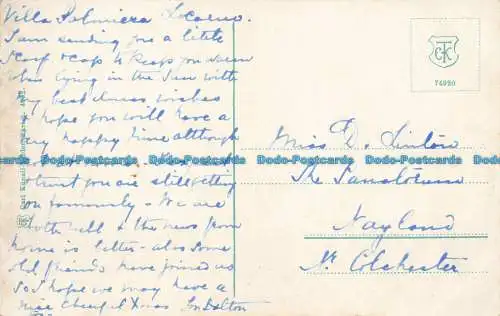 Villa Palmiera Locarno.
I am sending you a little
scarf & cap to keep you warm
when lying in the sun with
my best Xmas wishes
I hope you will have a
very happy time although
trust you are still getting
on famously - We are
both well & the news from
home is better - also some
old friends have joined us
so I hope we may have a
nice cheerful Xmas
Dalton
TCK
74920
Miss D. Linton
The Sanatorium
Nayland
Nr. Colchester
Dodo-Postcards Dodo-Postcards Dodo-Postcards Dodo-Postcards Dodo-Postcards